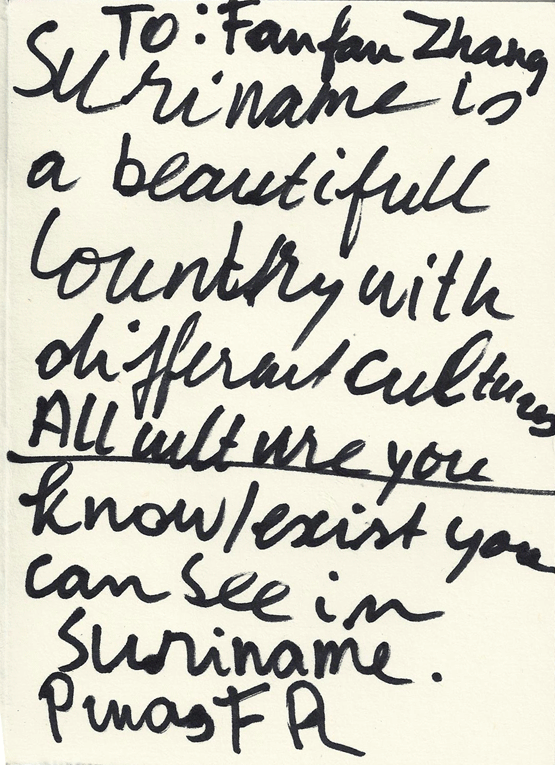 TO: Fanfan Zhang
Suriname is
a beautifull
Country with
different cultures
All culture you
know/exist you
can See in
Suriname.
Pinas F R